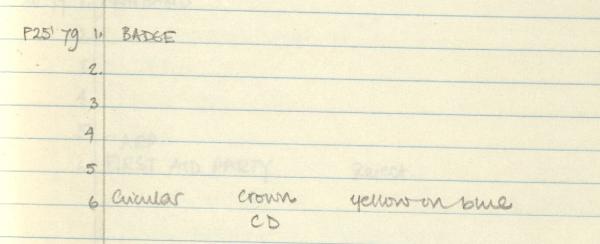 P25'79 1. BADGE
2.
3
4
5
6 Circular crown yellow on blue
CD